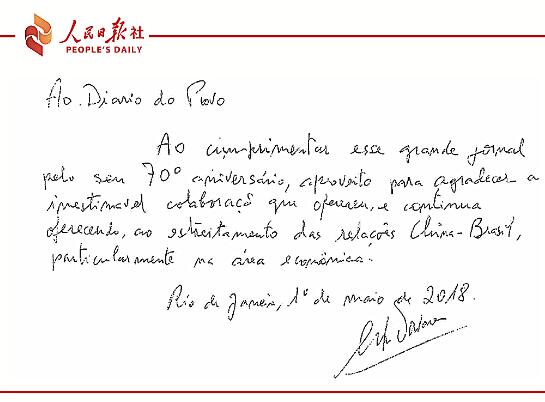 人民日报社
PEOPLE'S DAILY
Ao Diario do Povo
Ao cumprimentar esse grande jornal
pelo seu 70º aniversário, aproveito para agradecer a
inestimável colaboração que ofereceu, e continua
oferecendo, ao estreitamento das relações China-Brasil,
particularmente na área econômica.
Rio de Janeiro, 1º de maio de 2018.